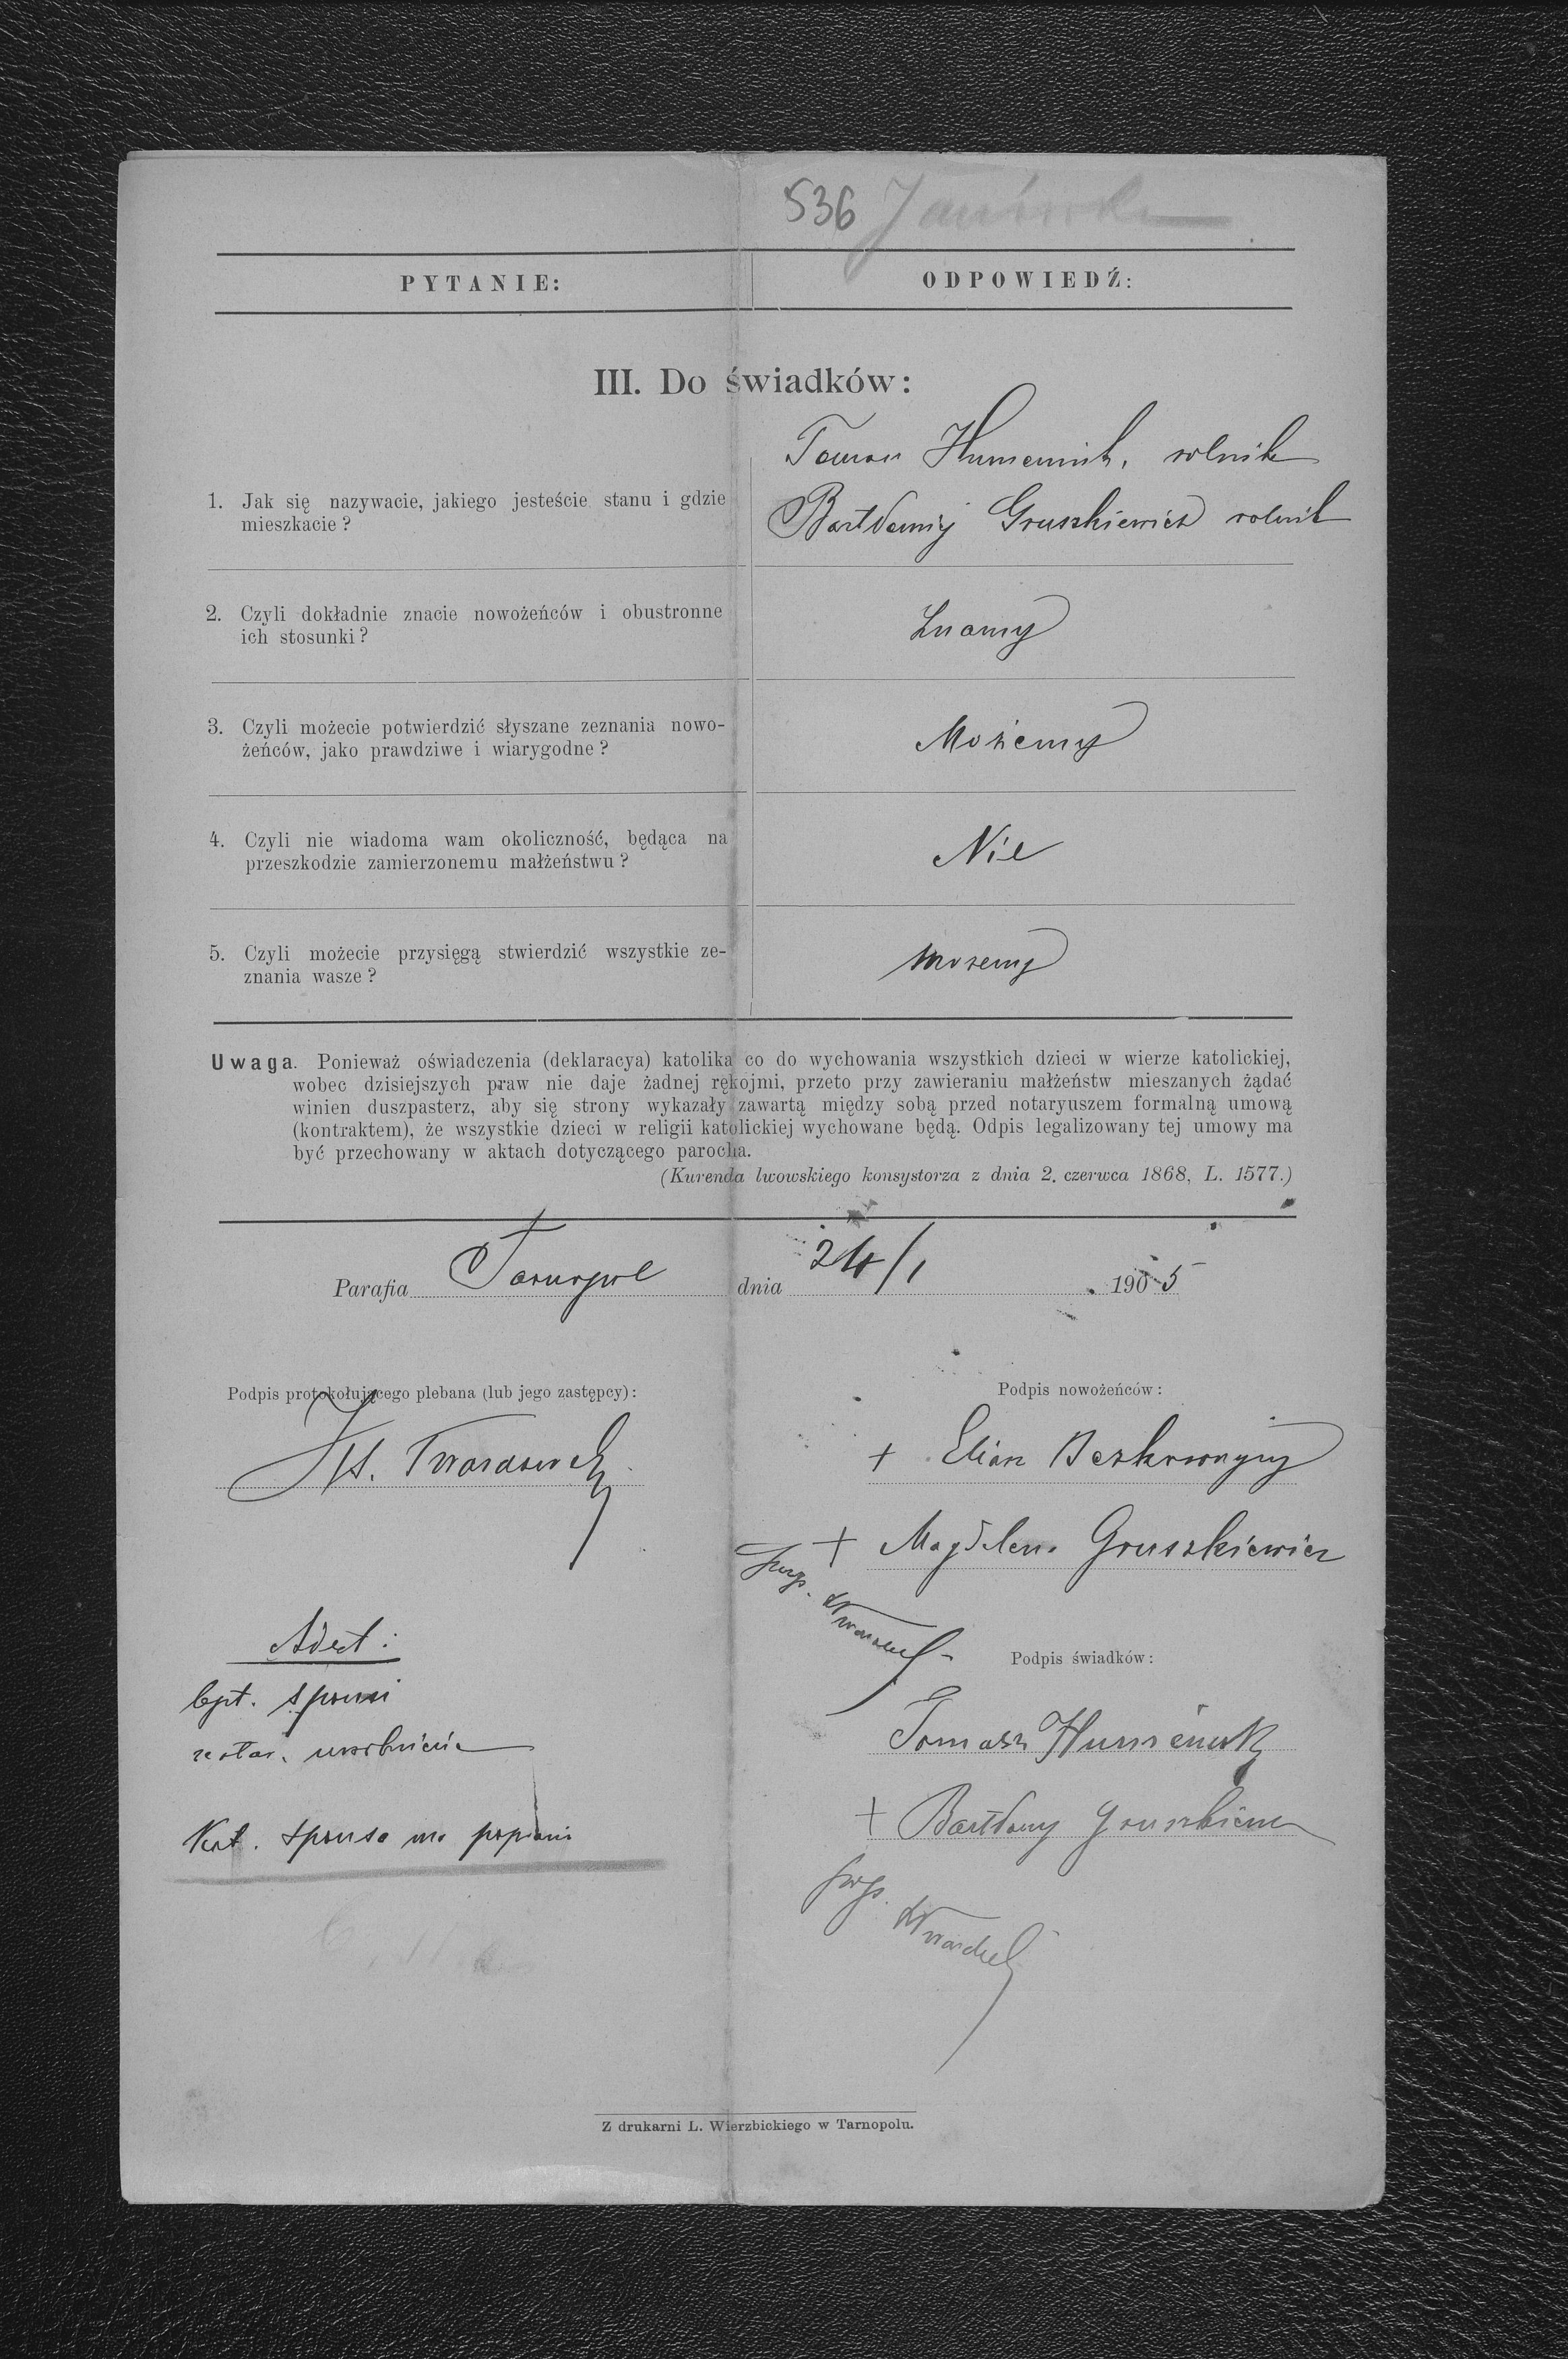 536 Janówka
PYTANIE: ODPOWIEDŹ:
III. Do świadków:
Tomasz Humeniuk, rolnik
1. Jak się nazywacie, jakiego jesteście stanu i gdzie
mieszkacie?
Bartłomiej Gruszkiewicz rolnik
2. Czyli dokładnie znacie nowożeńców i obustronne
ich stosunki?
Znamy
3. Czyli możecie potwierdzić słyszane zeznania nowo-
żeńców, jako prawdziwe i wiarygodne?
Możemy
4. Czyli nie wiadoma wam okoliczność, będąca na
przeszkodzie zamierzonemu małżeństwu?
Nie
5. Czyli możecie przysięgą stwierdzić wszystkie ze-
znania wasze?
możemy
Uwaga. Ponieważ oświadczenia (deklaracya) katolika co do wychowania wszystkich dzieci w wierze katolickiej,
wobec dzisiejszych praw nie daje żadnej rękojmi, przeto przy zawieraniu małżeństw mieszanych żądać
winien duszpasterz, aby się strony wykazały zawartą między sobą przed notaryuszem formalną umową
(kontraktem), że wszystkie dzieci w religii katolickiej wychowane będą. Odpis legalizowany tej umowy ma
być przechowany w aktach dotyczącego parocha.
(Kurenda lwowskiego konsystorza z dnia 2. czerwca 1868, L. 1577.)
Parafia Tarnopol dnia 24/1 1905
Podpis protokołującego plebana (lub jego zastępcy): Podpis nowożeńców:
+ Eliasz Bezkorowajny
+ Magdalena Gruszkiewicz
Adest:
Podpis świadków:
bpt. sponsi
Tomasz Humeniuk
+ Bartłomy Gruszkiewicz
sponsa ma
Z drukarni L. Wierzbickiego w Tarnopolu.